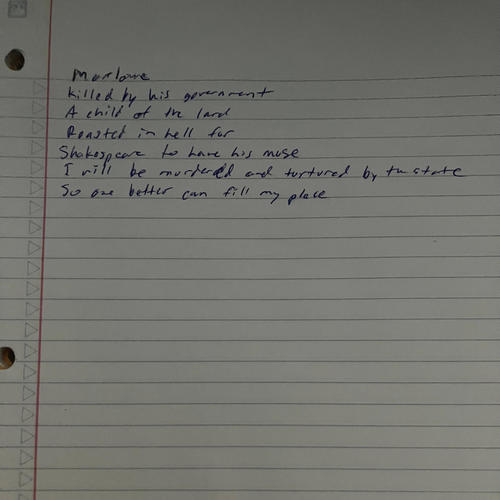 Marlowe
Killed by his government
A child of the land
Roasted in hell for
Shakespeare to have his muse
I will be murdered and turtured by the state
So one better can fill my place